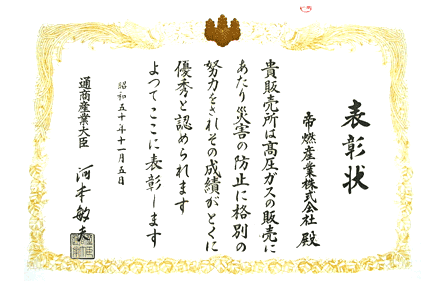 表彰状
帝燃産業株式会社 殿
貴販売所は高圧ガスの販売に
あたり災害の防止に格別の
努力をされその成績がとくに
優秀と認められます
よつてここに表彰します
昭和五十年十一月五日
通商産業大臣 河本敏夫